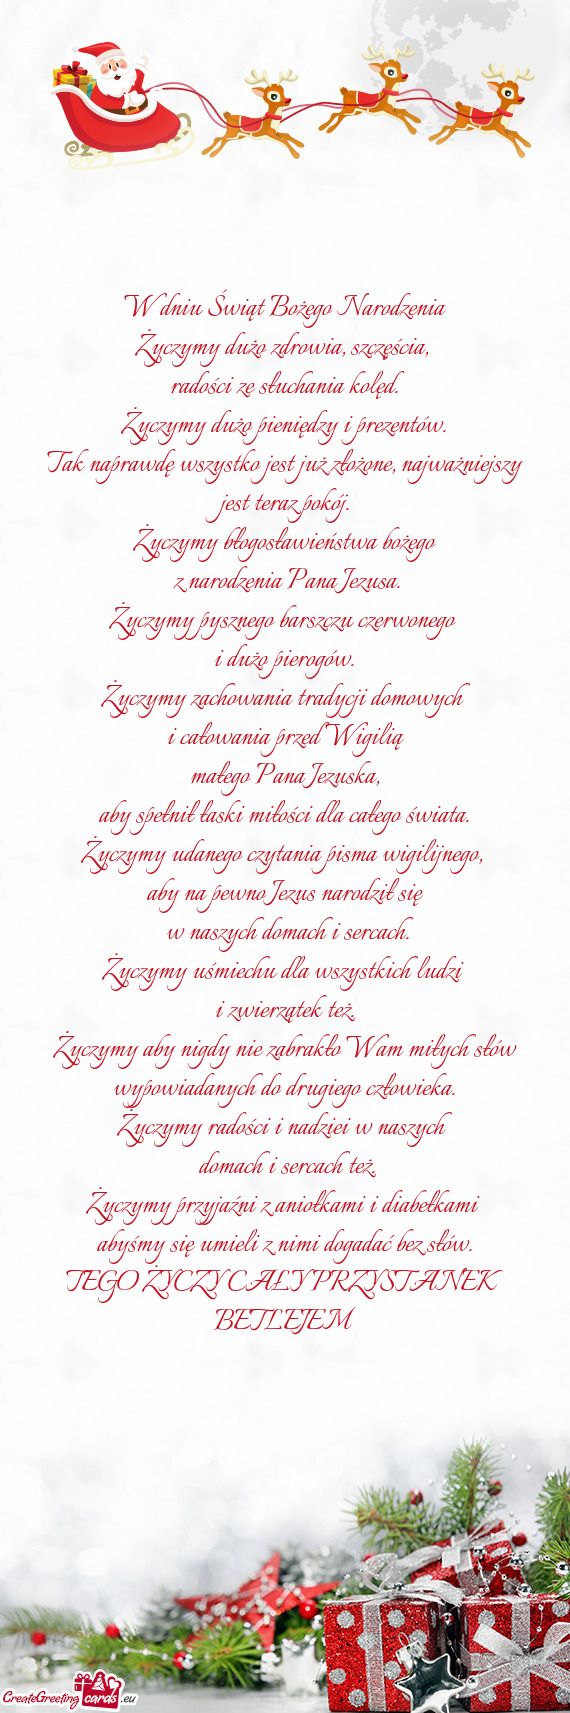 W dniu Świąt Bożego Narodzenia
Życzymy dużo zdrowia, szczęścia,
radości ze słuchania kolęd.
Życzymy dużo pieniędzy i prezentów.
Tak naprawdę wszystko jest już złożone, najważniejszy
jest teraz pokój.
Życzymy błogosławieństwa bożego
z narodzenia Pana Jezusa.
Życzymy pysznego barszczu czerwonego
i dużo pierogów.
Życzymy zachowania tradycji domowych
i całowania przed Wigilią
małego Pana Jezuska,
aby spełnił łaski miłości dla całego świata.
Życzymy udanego czytania pisma wigilijnego,
aby na pewno Jezus narodził się
w naszych domach i sercach.
Życzymy uśmiechu dla wszystkich ludzi
i zwierzątek też.
Życzymy aby nigdy nie zabrakło Wam miłych słów
wypowiadanych do drugiego człowieka.
Życzymy radości i nadziei w naszych
domach i sercach też.
Życzymy przyjaźni z aniołkami i diabełkami
abyśmy się umieli z nimi dogadać bez słów.
TEGO ŻYCZY CAŁY PRZYSTANEK
BETLEJEM
CreateGreeting cards .eu